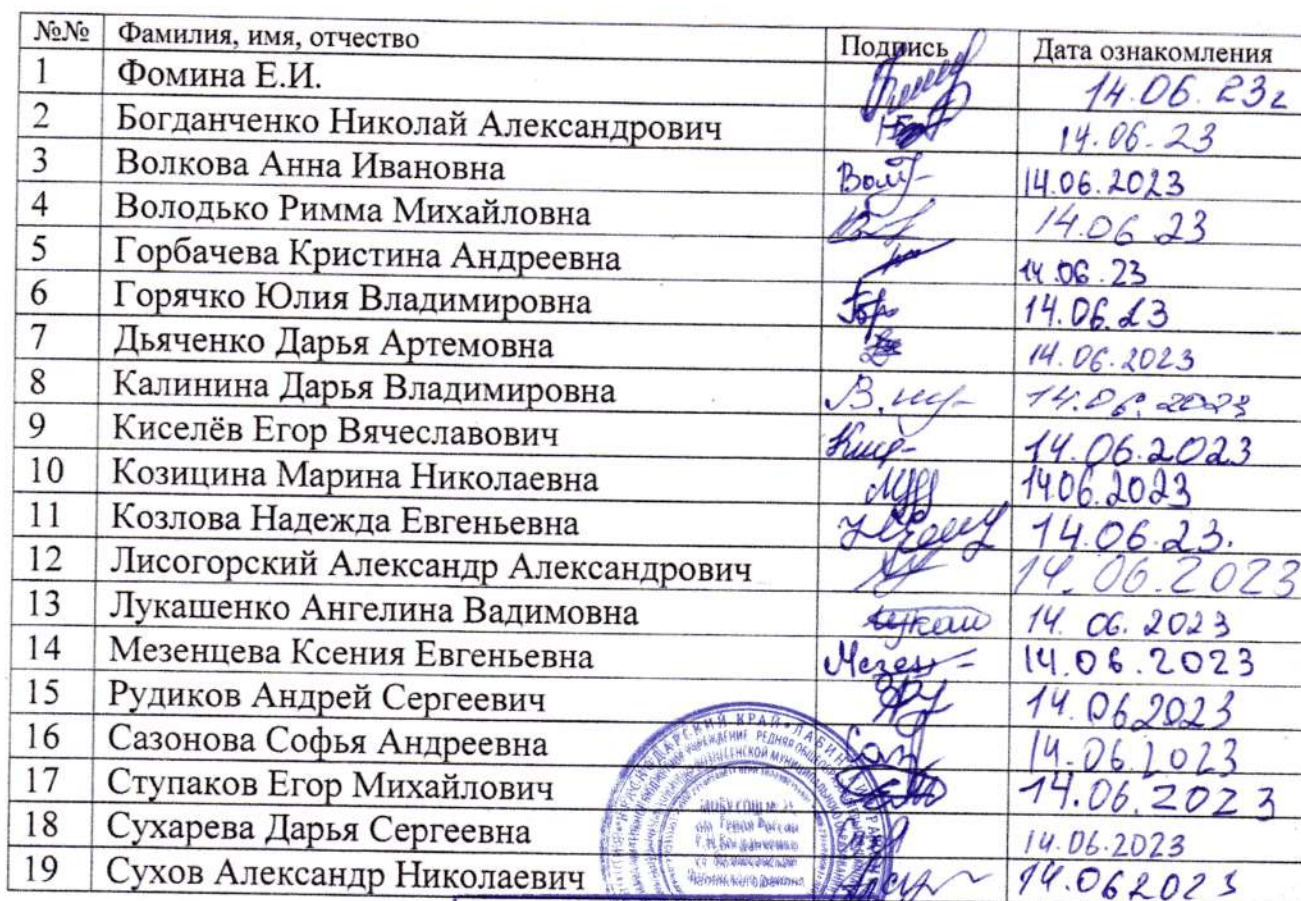 №№ Фамилия, имя, отчество Подпись Дата ознакомления
1 Фомина Е.И. 14.06.23г
2 Богданченко Николай Александрович 14.06.23
3 Волкова Анна Ивановна 14.06.2023
4 Володько Римма Михайловна 14.06.23
5 Горбачева Кристина Андреевна 14.06.23
6 Горячко Юлия Владимировна Гор 14.06.23
7 Дьяченко Дарья Артемовна 14.06.2023
8 Калинина Дарья Владимировна 14.06.2023
9 Киселёв Егор Вячеславович 14.06.2023
10 Козицина Марина Николаевна 14.06.2023
11 Козлова Надежда Евгеньевна 14.06.23.
12 Лисогорский Александр Александрович 14.06.2023
13 Лукашенко Ангелина Вадимовна 14.06.2023
14 Мезенцева Ксения Евгеньевна Мезен 14.06.2023
15 Рудиков Андрей Сергеевич 14.06.2023
16 Сазонова Софья Андреевна Саз 14.06.2023
17 Ступаков Егор Михайлович 14.06.2023
18 Сухарева Дарья Сергеевна 14.06.2023
19 Сухов Александр Николаевич 14.06.2023